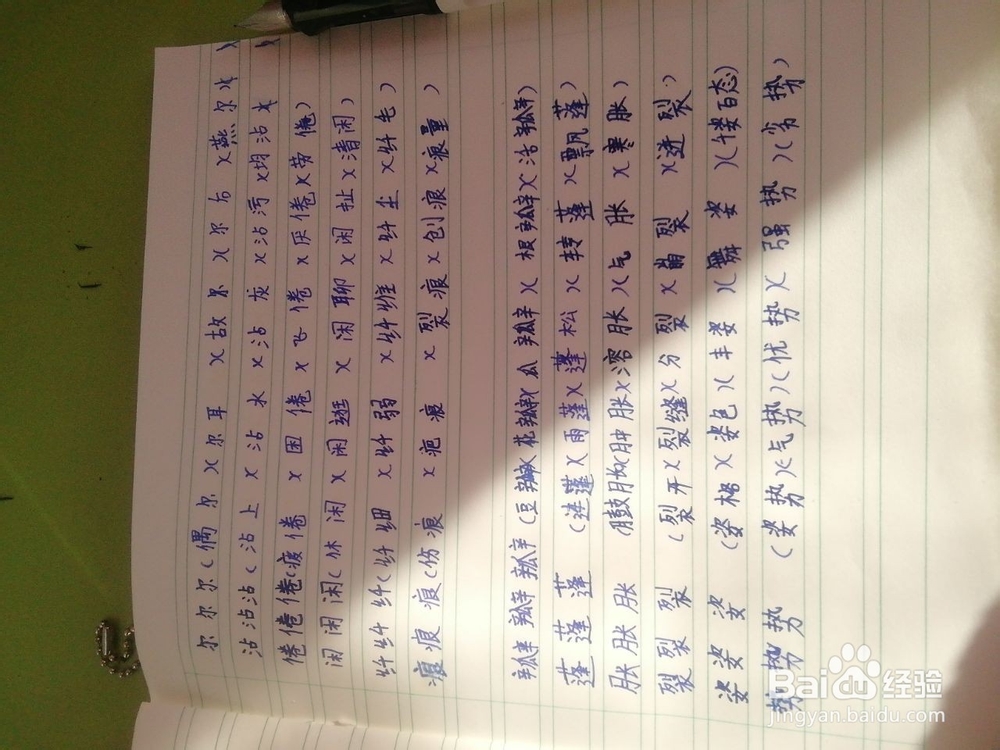 尔尔尔(偶尔)(尔耳)(故尔)(尔右)(燕尔)()
沾沾沾(沾上)(沾水)(沾灰)(沾污)(均沾)()
倦倦倦(疲倦)(困倦)(飞倦)(厌倦)(劳倦)
闲闲闲(休闲)(闲逛)(闲聊)(闲扯)(清闲)
纤纤纤(纤细)(纤弱)(纤维)(纤尘)(纤毛)
痕痕痕(伤痕)(疤痕)(裂痕)(创痕)(痕量)
瓣瓣瓣(豆瓣)(花瓣)(瓜瓣)(根瓣)(活瓣)
蓬蓬蓬(莲蓬)(雨蓬)(蓬松)(转蓬)(飘蓬)
胀胀胀(膨胀)(肿胀)(溶胀)(气胀)(寒胀)
裂裂裂(裂开)(裂缝)(分裂)(裂)(迸裂)
姿姿姿(姿格)(姿色)(丰姿)(舞姿)(千姿百态)
势势势(姿势)(气势)(优势)(强势)(劣势)
Baidu经验
jingyan.baidu.com